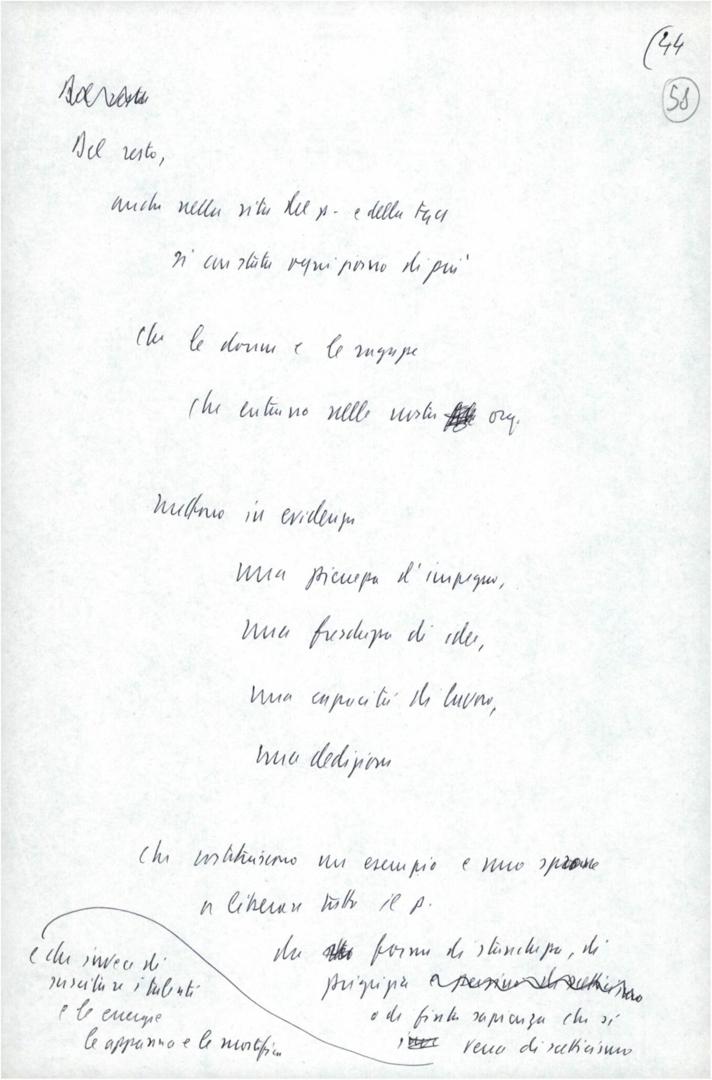 (44
58
Del resto
Del resto,
anche nella vita del p. e della FGCI
si constata ogni giorno di più
che le donne e le ragazze
che entrano nelle nostre org.
mettono in evidenza
una pienezza d'impegno,
una freschezza di idee,
una capacità di lavoro,
una dedizione
che costituiscono un esempio e uno sprone
a liberare tutto il p.
da forme di stanchezza, di
pigrizia e persino di scetticismo
o di finta saggezza che si
vena di scetticismo
e che invece di
suscitare i talenti
e le energie
le appanna e le mortifica